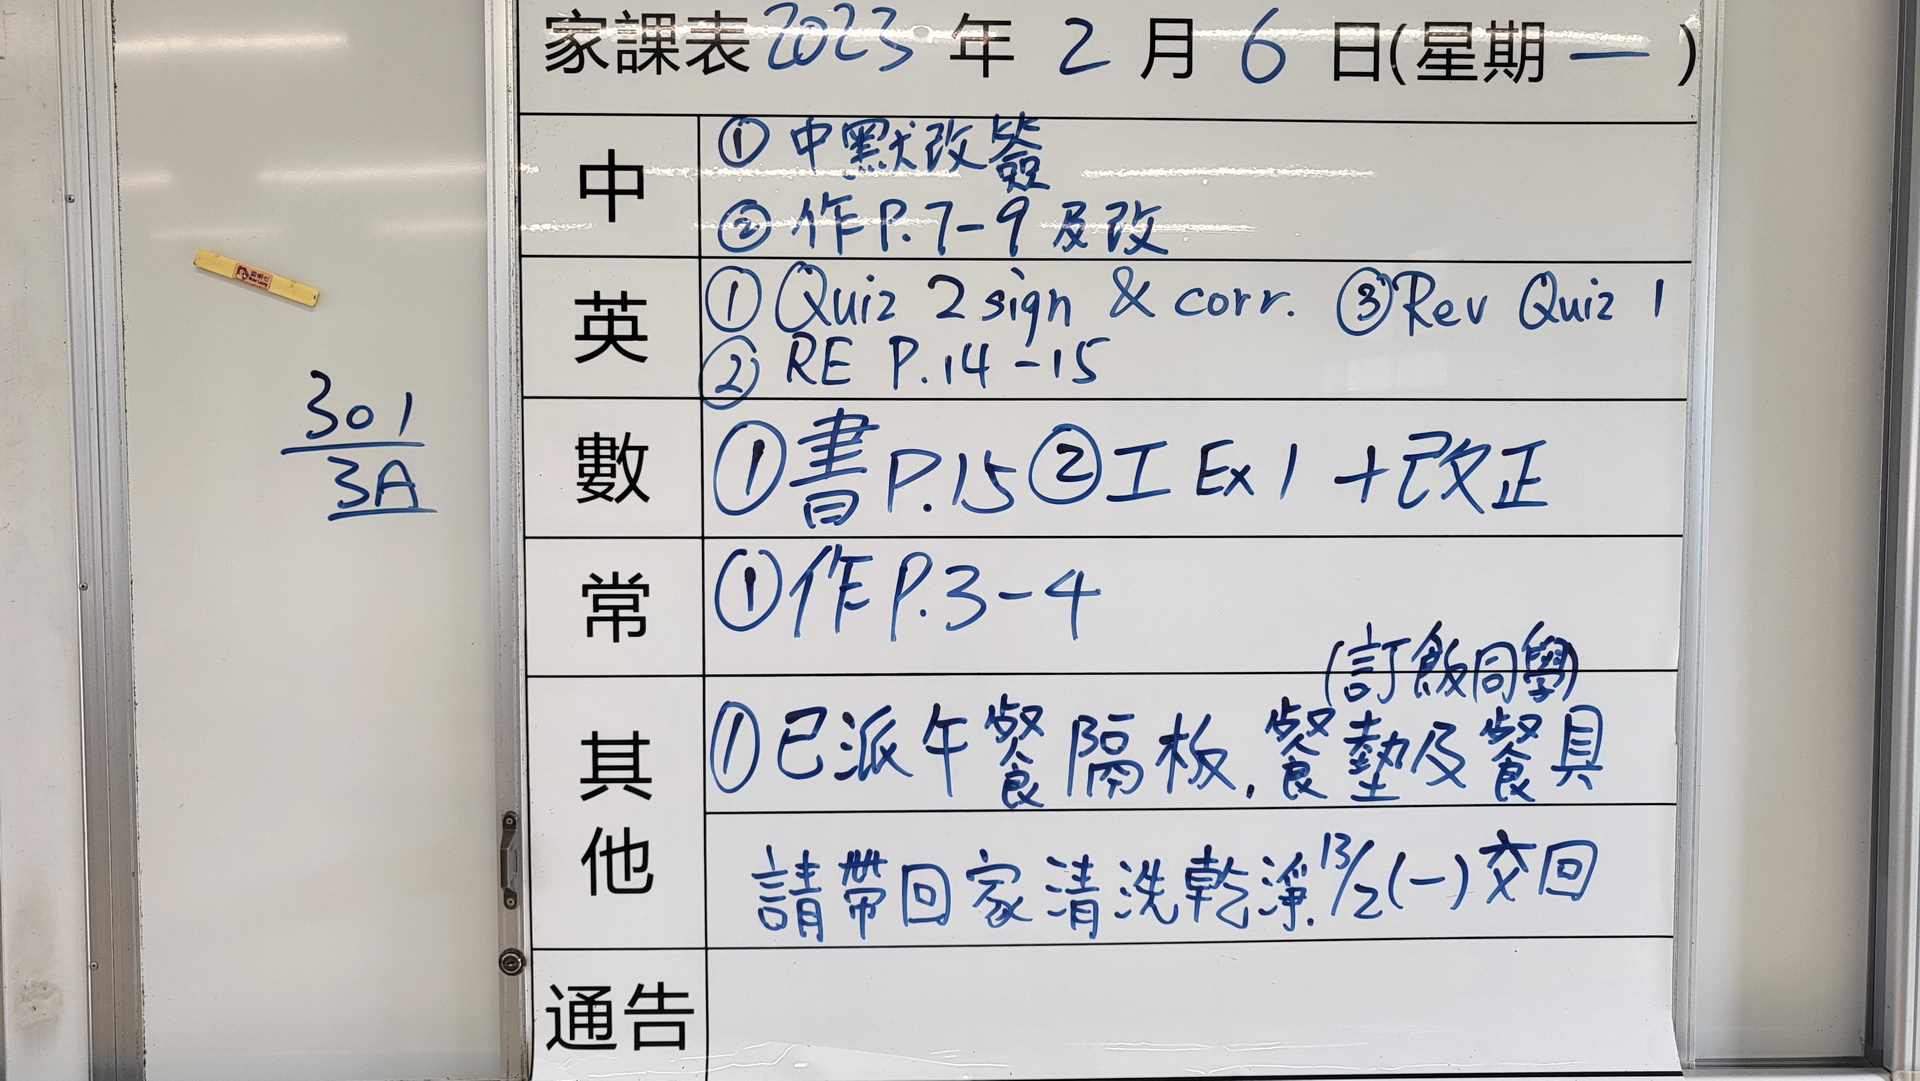 家課表2023年2月6日(星期一)
中
①中默改簽
②作P.7-9及改
英
①Quiz 2 sign & corr. ③Rev Quiz 1
②RE P.14-15
數
①書P.15②工Ex1+改正
常
①作P.3-4
其他
(訂飯同學)
①已派午餐隔板,餐墊及餐具
請帶回家清洗乾淨.13/2(一)交回
通告
301
3A